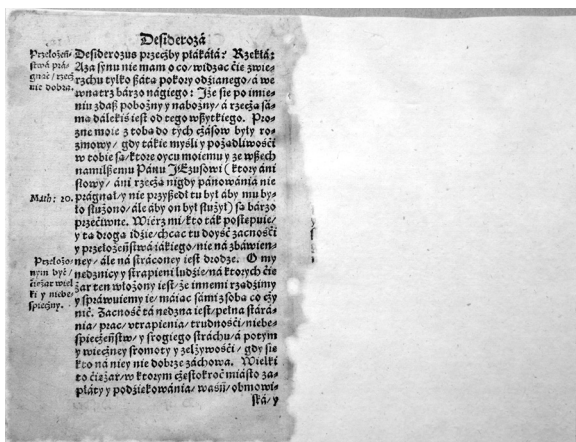 Desiderozá
Desiderozus przeczby plákála? Rzekłá:
Azá synu nie mam o co/widząc cie zwie-
rzchu tylko ßátá pokory odzianego/á we
wnątrz bárzo nágiego: Jże sie po imie-
niu zdaß pobożny y nabożny/ á rzeczą sá-
má dálekiś iest od tego wßytkiego. Pro-
zne moie z tobą do tych czásow były ro-
zmowy/ gdy tákie myśli y pożądliwości
w tobie są/ktore oycu moiemu y ze wßech
namilßemu Pánu JEzusowi (ktory áni
słowy/ áni rzeczą nigdy pánowánia nie
prágnął/y nie przyßedł tu był áby mu by-
ło służono/ále áby on był służył) są bárzo
przećiwne. Wierz mi/kto ták postępuie/
y tą drogą idzie/chcąc tu doyść zacnośći
y przełożeństwá iákiego/nie ná zbáwien-
ney/ ále ná stráconey iest drodze. O my
nędznicy y strapieni ludzie/ná ktorych ćię
żar ten włożony iest/że innemi rządzimy
y spráwuiemy ie/máiąc sámi z sobą co czy
nić. Zacność tá nędzna iest/pełna stárá-
nia/ prac/ vtrapienia/ trudnośći/ niebe-
spieczeństw/ y srogiego stráchu/ á potym
y wieczney sromoty y zelżywośći/ gdy sie
kto ná niey nie dobrze záchowa. Wielki
to ćiężar/w ktorym częstokroć miásto zá-
płáty y podziękowánia/ wáśń/ obmowi-
ská/ y
Przełożeń-
stwá prá-
gnąć/ rzecz
nie dobra.
Math: 20.
Przełożo-
nym być/
ćiężar wiel
ki y niebe-
spieczny.